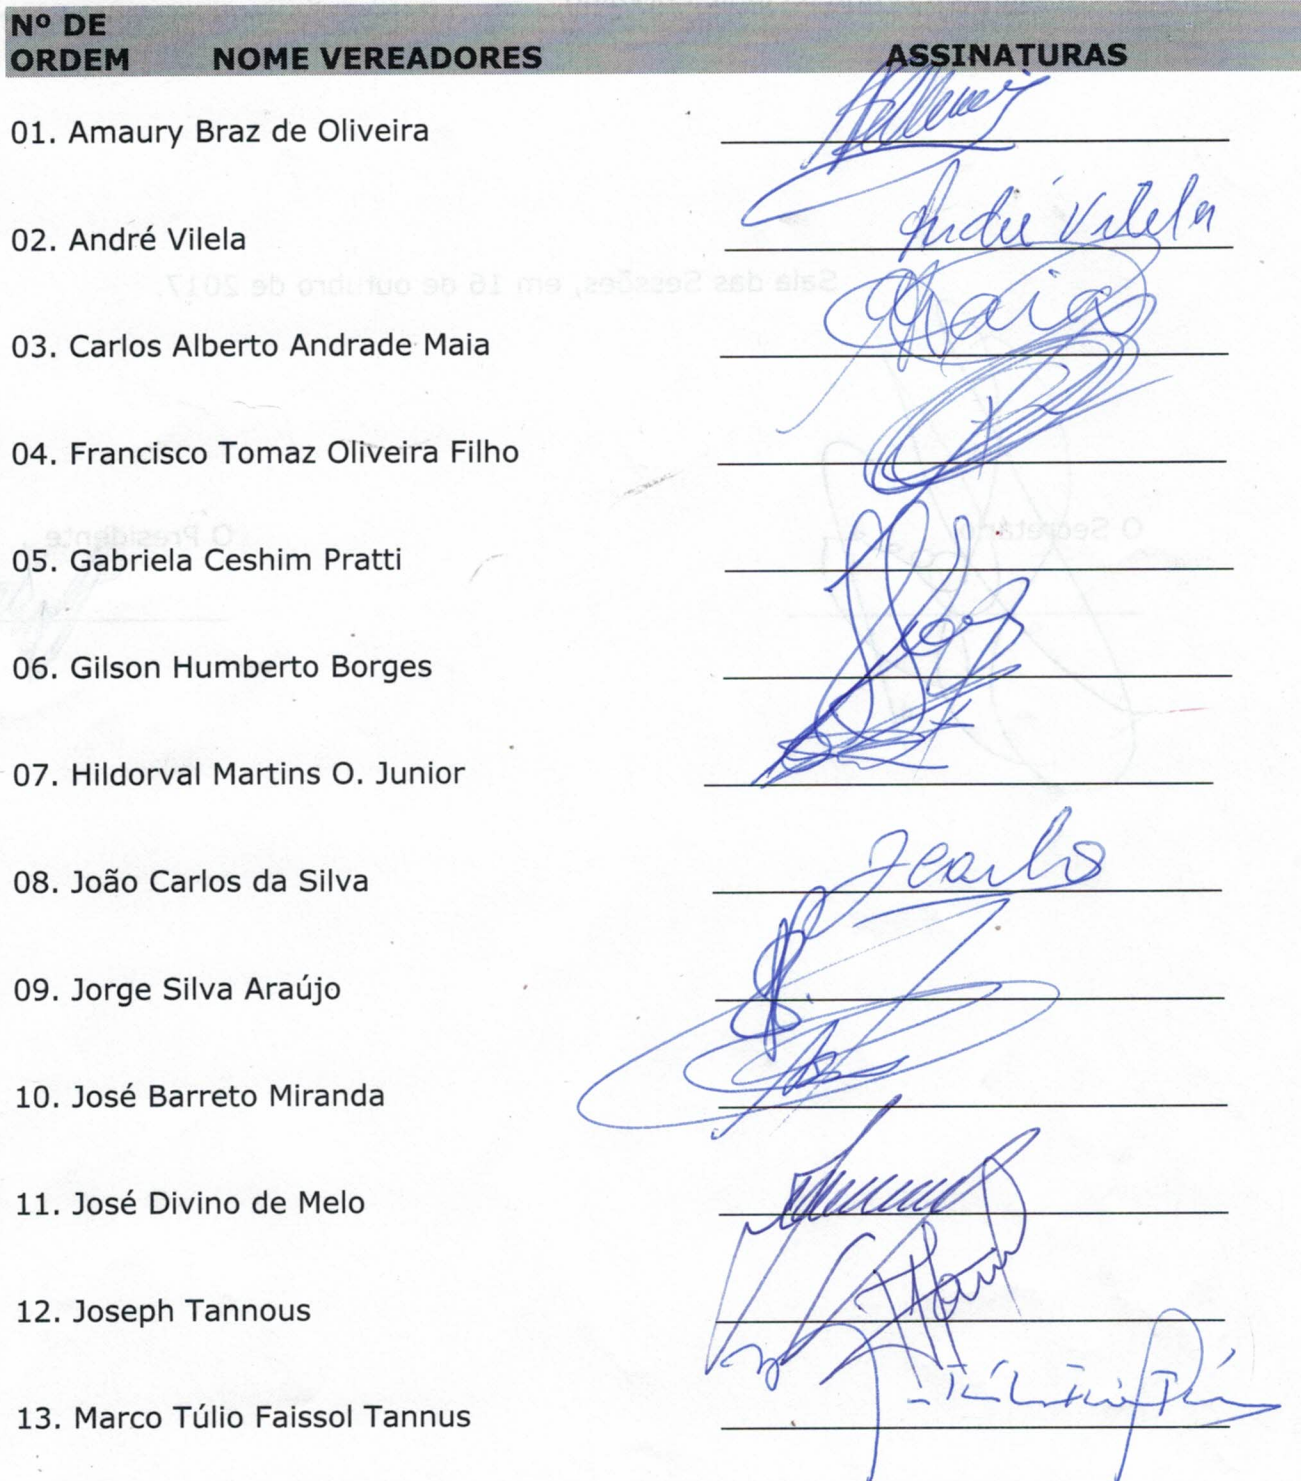 Nº DE
ORDEM NOME VEREADORES ASSINATURAS
01. Amaury Braz de Oliveira
02. André Vilela André Vilela
Sala das Sessões, em 16 de outubro de 2017.
03. Carlos Alberto Andrade Maia Maia
04. Francisco Tomaz Oliveira Filho
O Presidente O Secretário
05. Gabriela Ceshim Pratti
06. Gilson Humberto Borges
07. Hildorval Martins O. Junior
08. João Carlos da Silva Jcarlos
09. Jorge Silva Araújo
10. José Barreto Miranda
11. José Divino de Melo
12. Joseph Tannous
13. Marco Túlio Faissol Tannus